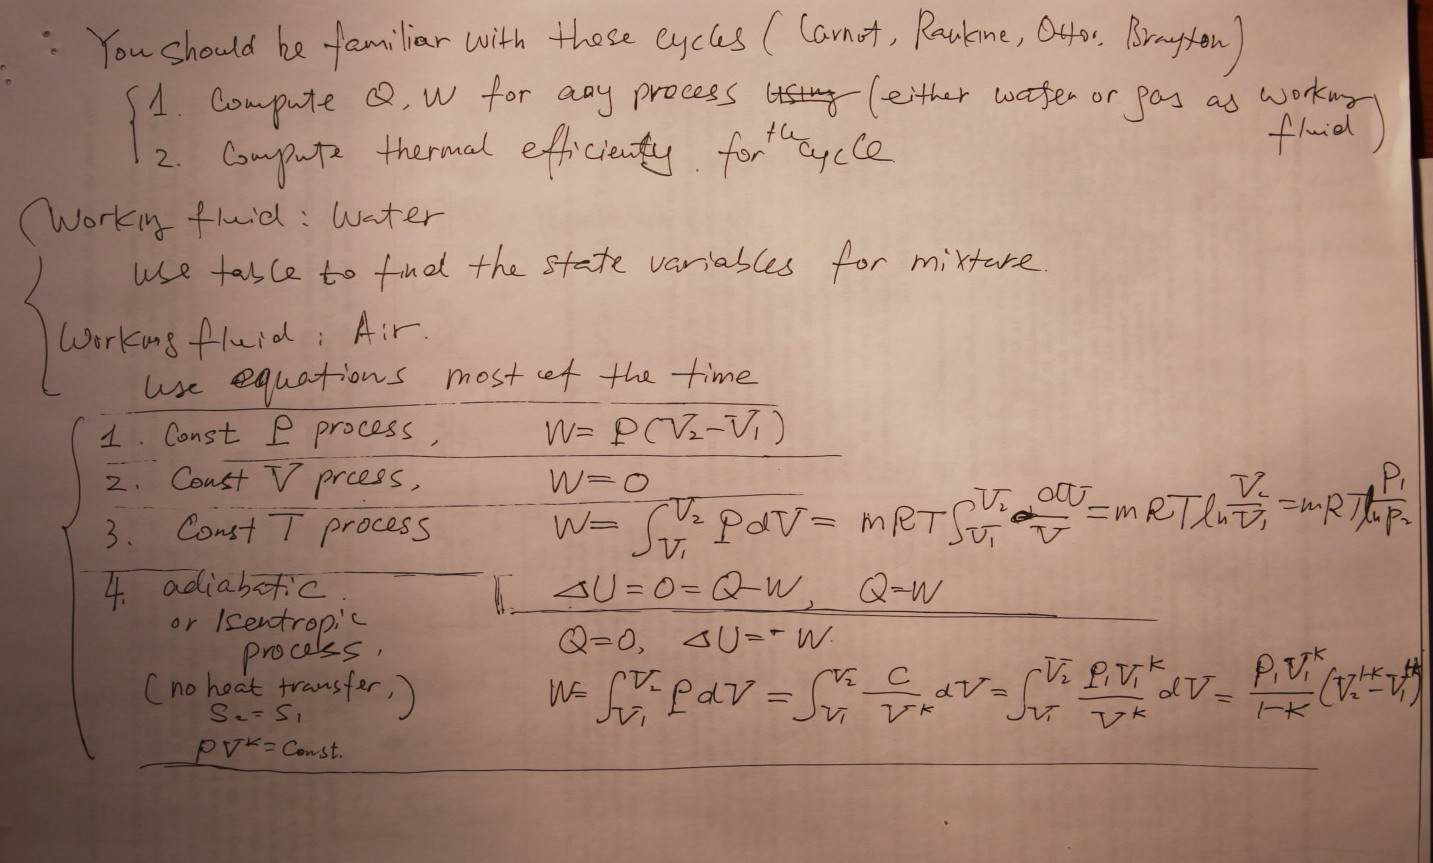 You should be familiar with these cycles (Carnot, Rankine, Otto, Brayton)
1. Compute Q, W for any process using (either water or gas as working fluid)
2. Compute thermal efficiency for the cycle
Working fluid : Water
Use table to find the state variables for mixture.
Working fluid : Air.
Use equations most of the time
1. Const P process, W = P(V₂-V₁)
2. Const V prcess, W = 0
3. Const T process W = ∫_{V₁}^{V₂} P dV = mRT ∫_{V₁}^{V₂} dV/V = mRT ln V₂/V₁ = mRT ln P₁/P₂
ΔU = 0 = Q-W, Q = W
4. adiabatic
or Isentropic
process,
(no heat transfer,)
S₂ = S₁
PV^k = Const.
Q = 0, ΔU = - W.
W = ∫_{V₁}^{V₂} P dV = ∫_{V₁}^{V₂} C/V^k dV = ∫_{V₁}^{V₂} P₁V₁^k/V^k dV = P₁V₁^k/1-k (V₂^{1-k} - V₁^{1-k})